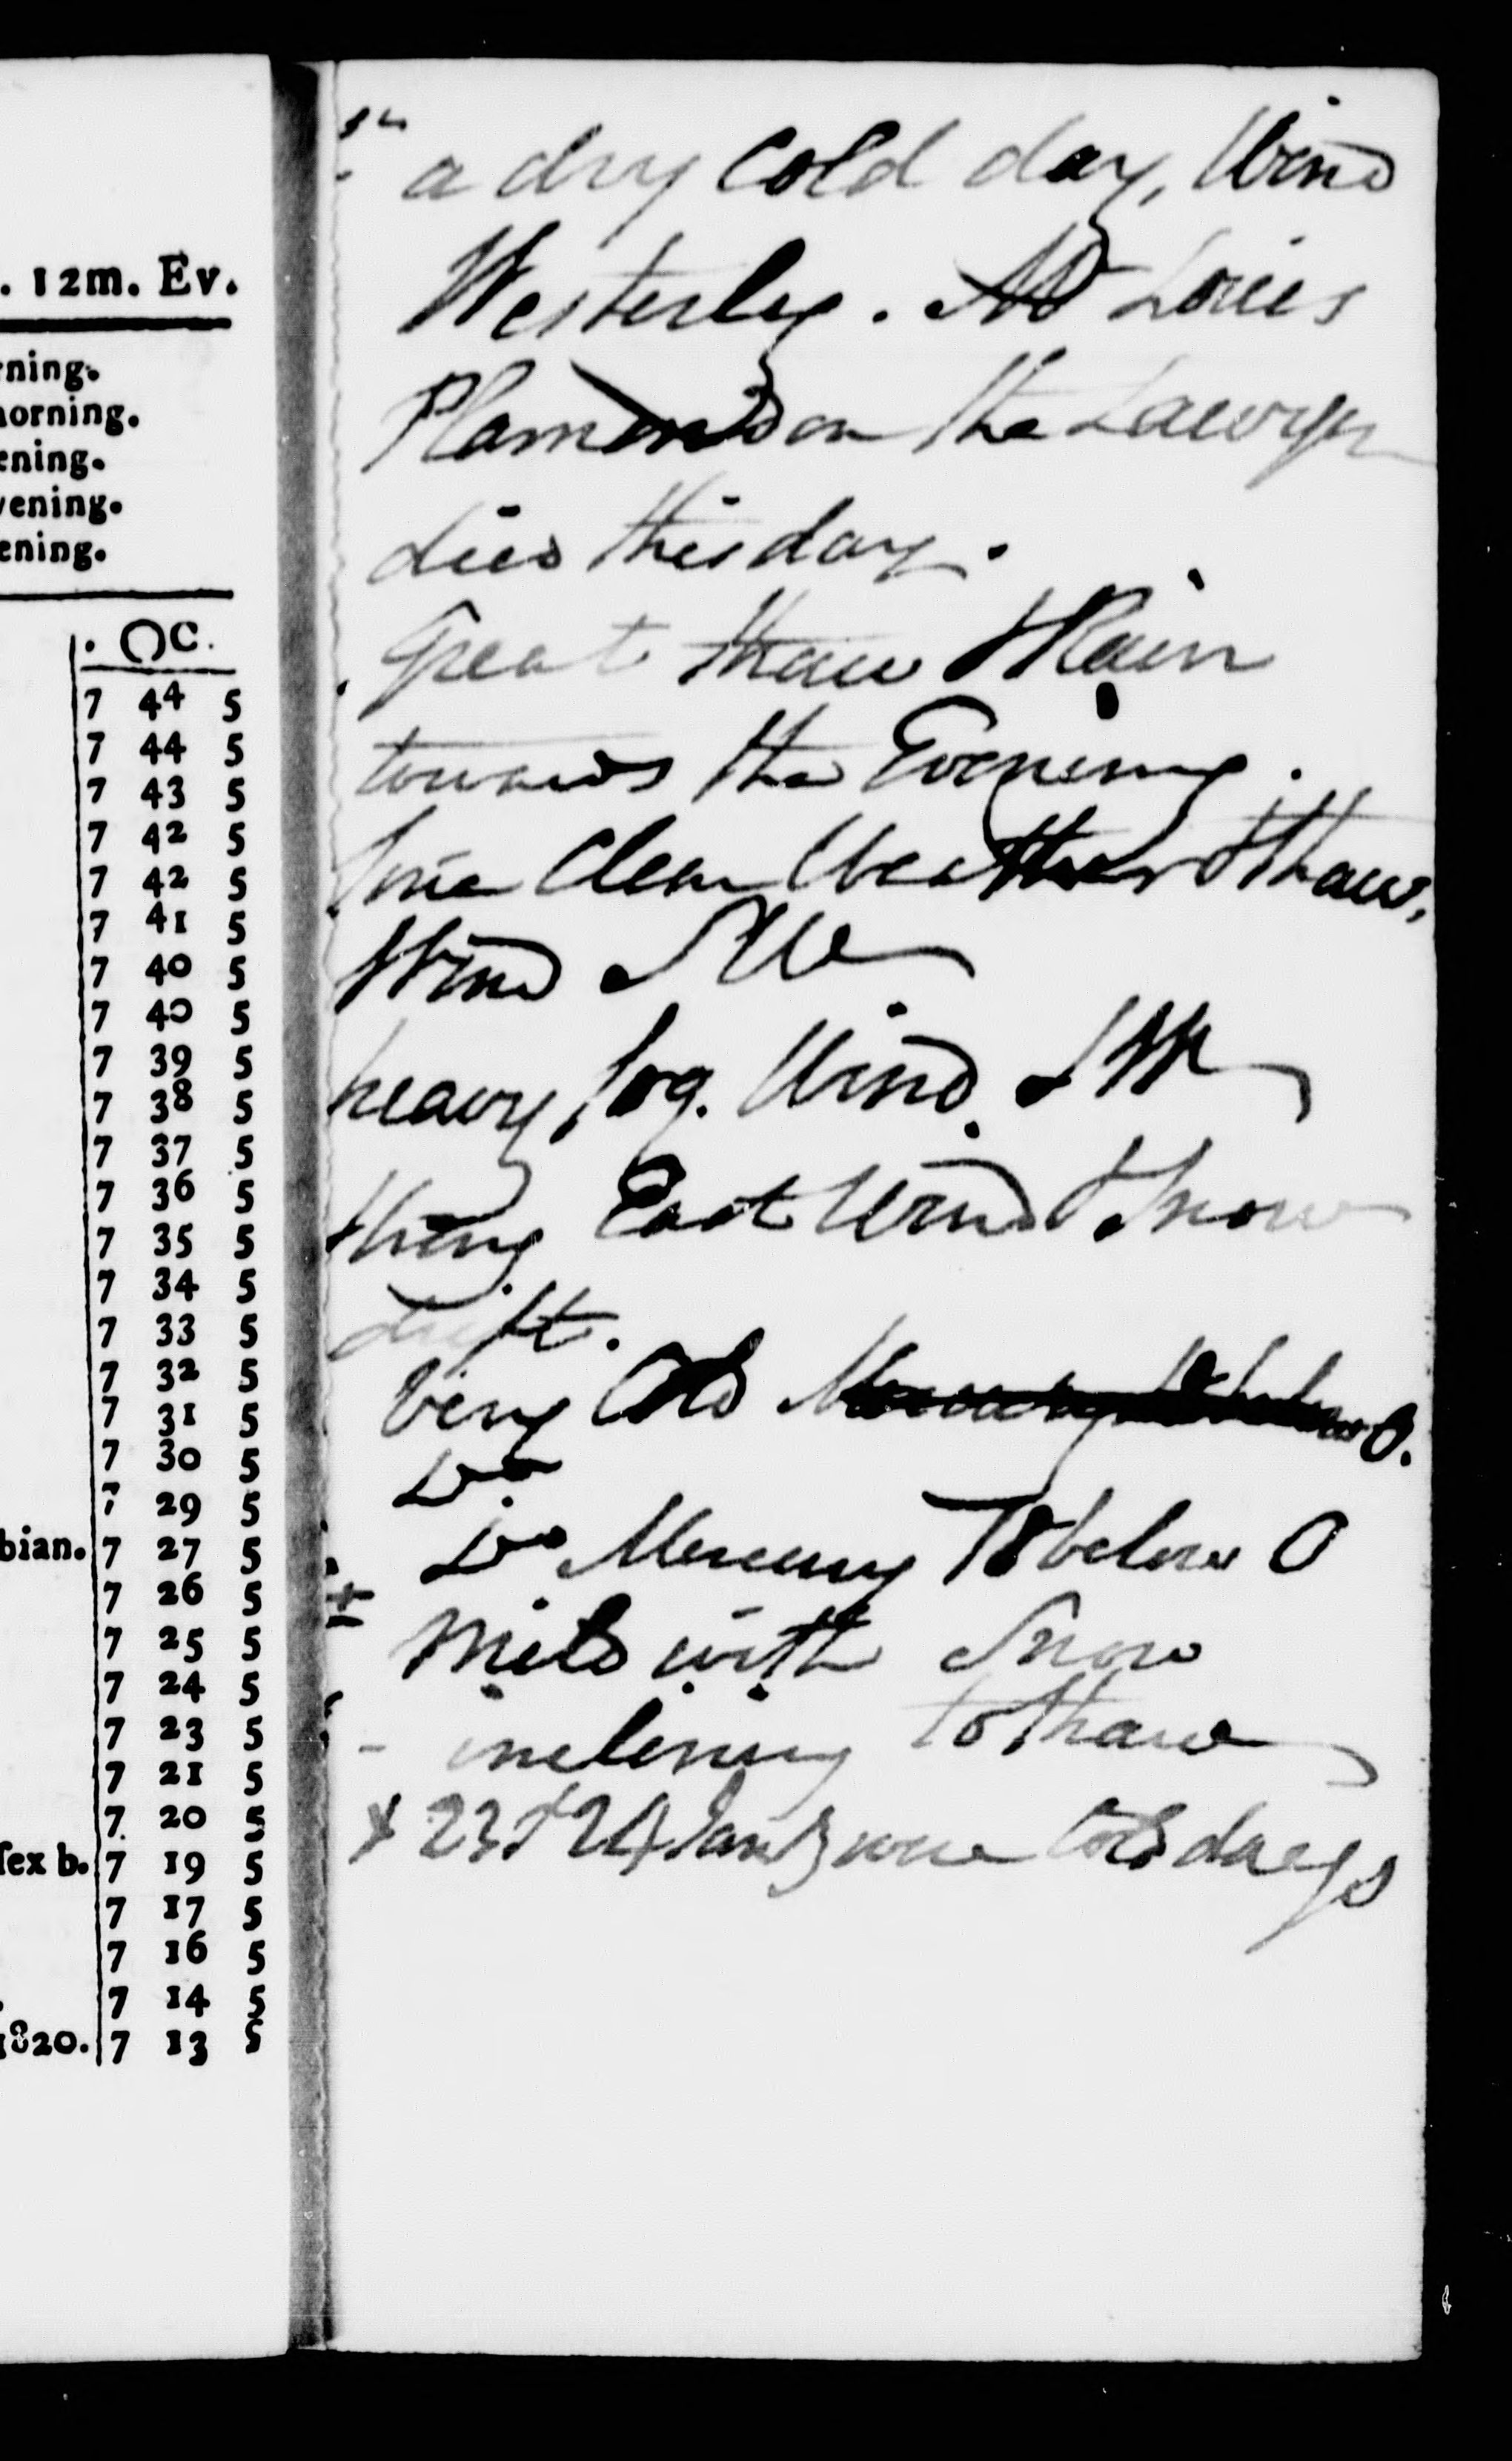 . 12m. Ev.
rning.
norning.
ening.
vening.
ening.
. ☉c.
7 44 5
7 44 5
7 43 5
7 42 5
7 42 5
7 41 5
7 40 5
7 40 5
7 39 5
7 38 5
7 37 5
7 36 5
7 35 5
7 34 5
7 33 5
7 32 5
7 31 5
7 30 5
7 29 5
bian. 7 27 5
7 26 5
7 25 5
7 24 5
7 23 5
7 21 5
7 20 5
ſex b. 7 19 5
7 17 5
7 16 5
7 14 5
1820. 7 13 5
a dry Cold day, Wind
Westerley. Louis
Plamondon the Lawyer
died this day.
Great thaw & Rain
towards the Evening.
fine Clear Weather & thaw,
Wind SW
heavy fog. Wind SW
thing East Wind & Snow
drift.
Very Cold 0.
Do.
Do Mercury 18 below 0
Mild with Snow
- inclining to thaw
x 23 & 24 Jany were Cold days